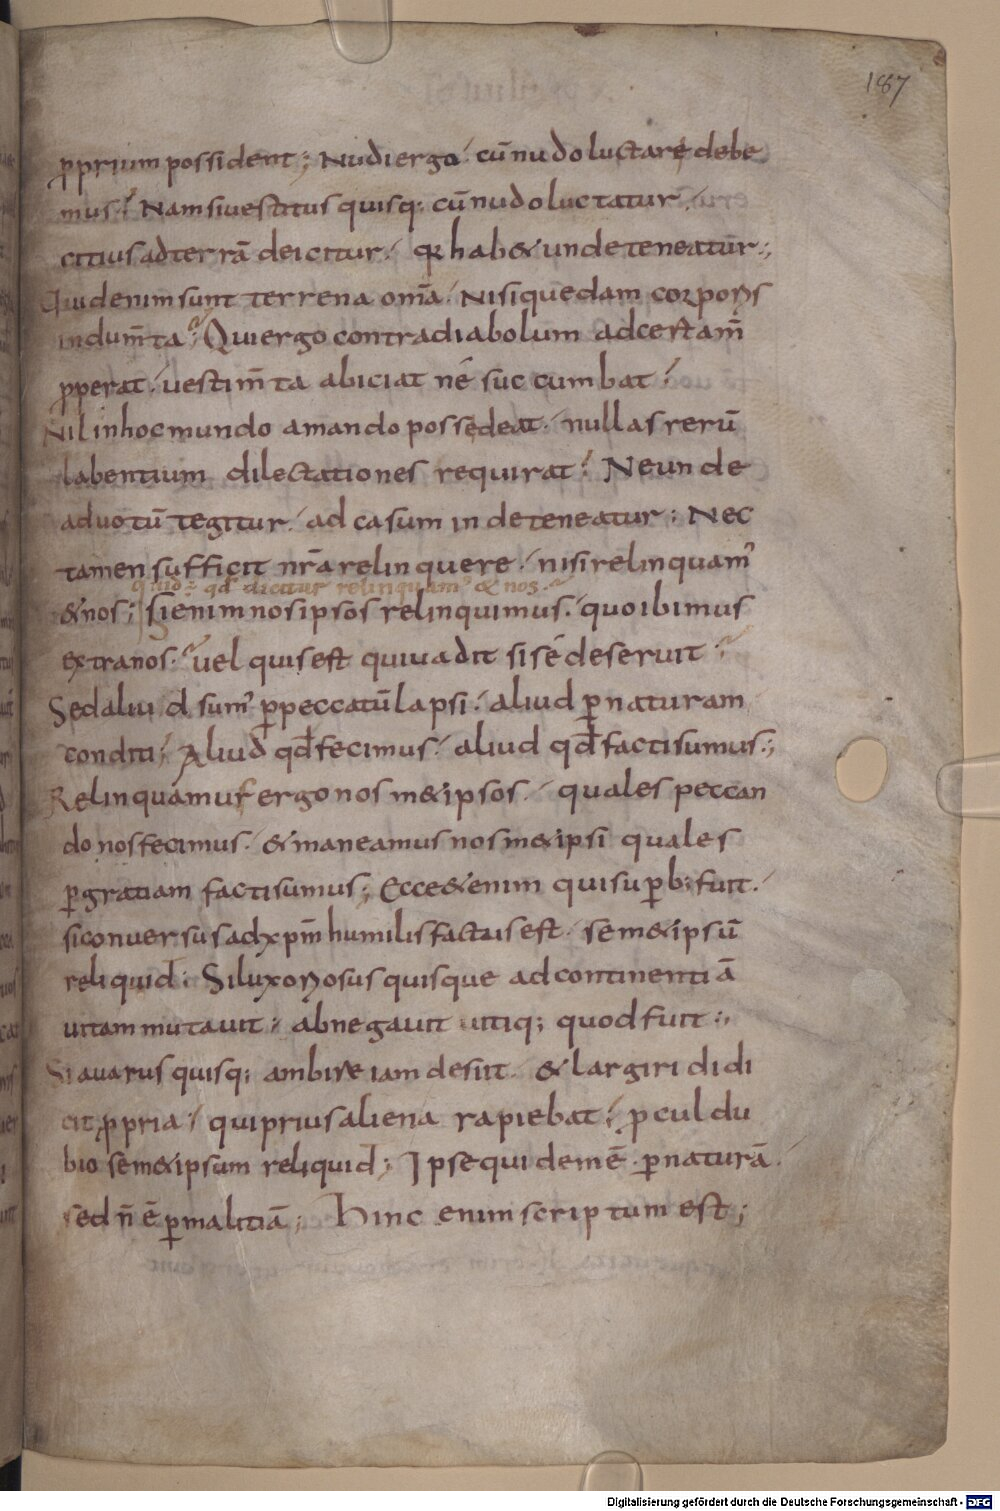 187
ꝓprium possident; Nudi ergo cū nudo luctare debe
mus; Nam si vestitus quisq; cū nudo luctatur
citius ad terrā deicitur. qꝛ hab& unde teneatur;
Quid enim sunt terrena om̄a. Nisi quedam corporis
indum̄ta; Qui ergo contra diabolum ad certam̄
ꝓperat. vestim̄ta abiciat né succumbat;
Nil in hoc mundo amando possedeat. nullas rerū
labentium dilectationes requirat; Ne unde
ad uotū tegitur. ad casum inde teneatur; Nec
tamen sufficit nr̄a relinquere. nisi relinquam'
quid: qđ dicitur relinquam' & nos.
& nos; si enim nos ipsos relinquimus. quo ibimus
extra nos. uel quis est qui uadit si sé deseruit;
Sed aliud sum' ꝑ peccatū lapsi. aliud ꝑ naturam
conditi; Aliud qđ fecimus. aliud qđ facti sumus;
Relinquamus ergo nosm&ipsos. quales peccan
do nos fecimus. & maneamus nosm&ipsi quales
ꝑ gratiam facti sumus; Ecce &enim qui suꝑb; fuit.
si conuersus ad xp̄m humilis factus est. sem&ipsū
reliquid; Si luxoriosus quisque ad continentiā
uitam mutauit; abnegauit utiq; quod fuit;
Si auarus quisq; ambire iam desiit. & largiri didi
cit ꝓpria; qui prius aliena rapiebat; ꝓcul du
bio sem&ipsum reliquid; Ipse quidem ē. ꝑ naturā.
sed n̄ ē ꝑ malitiā; Hinc enim scriptum est;
Digitalisierung gefördert durch die Deutsche Forschungsgemeinschaft - DFG